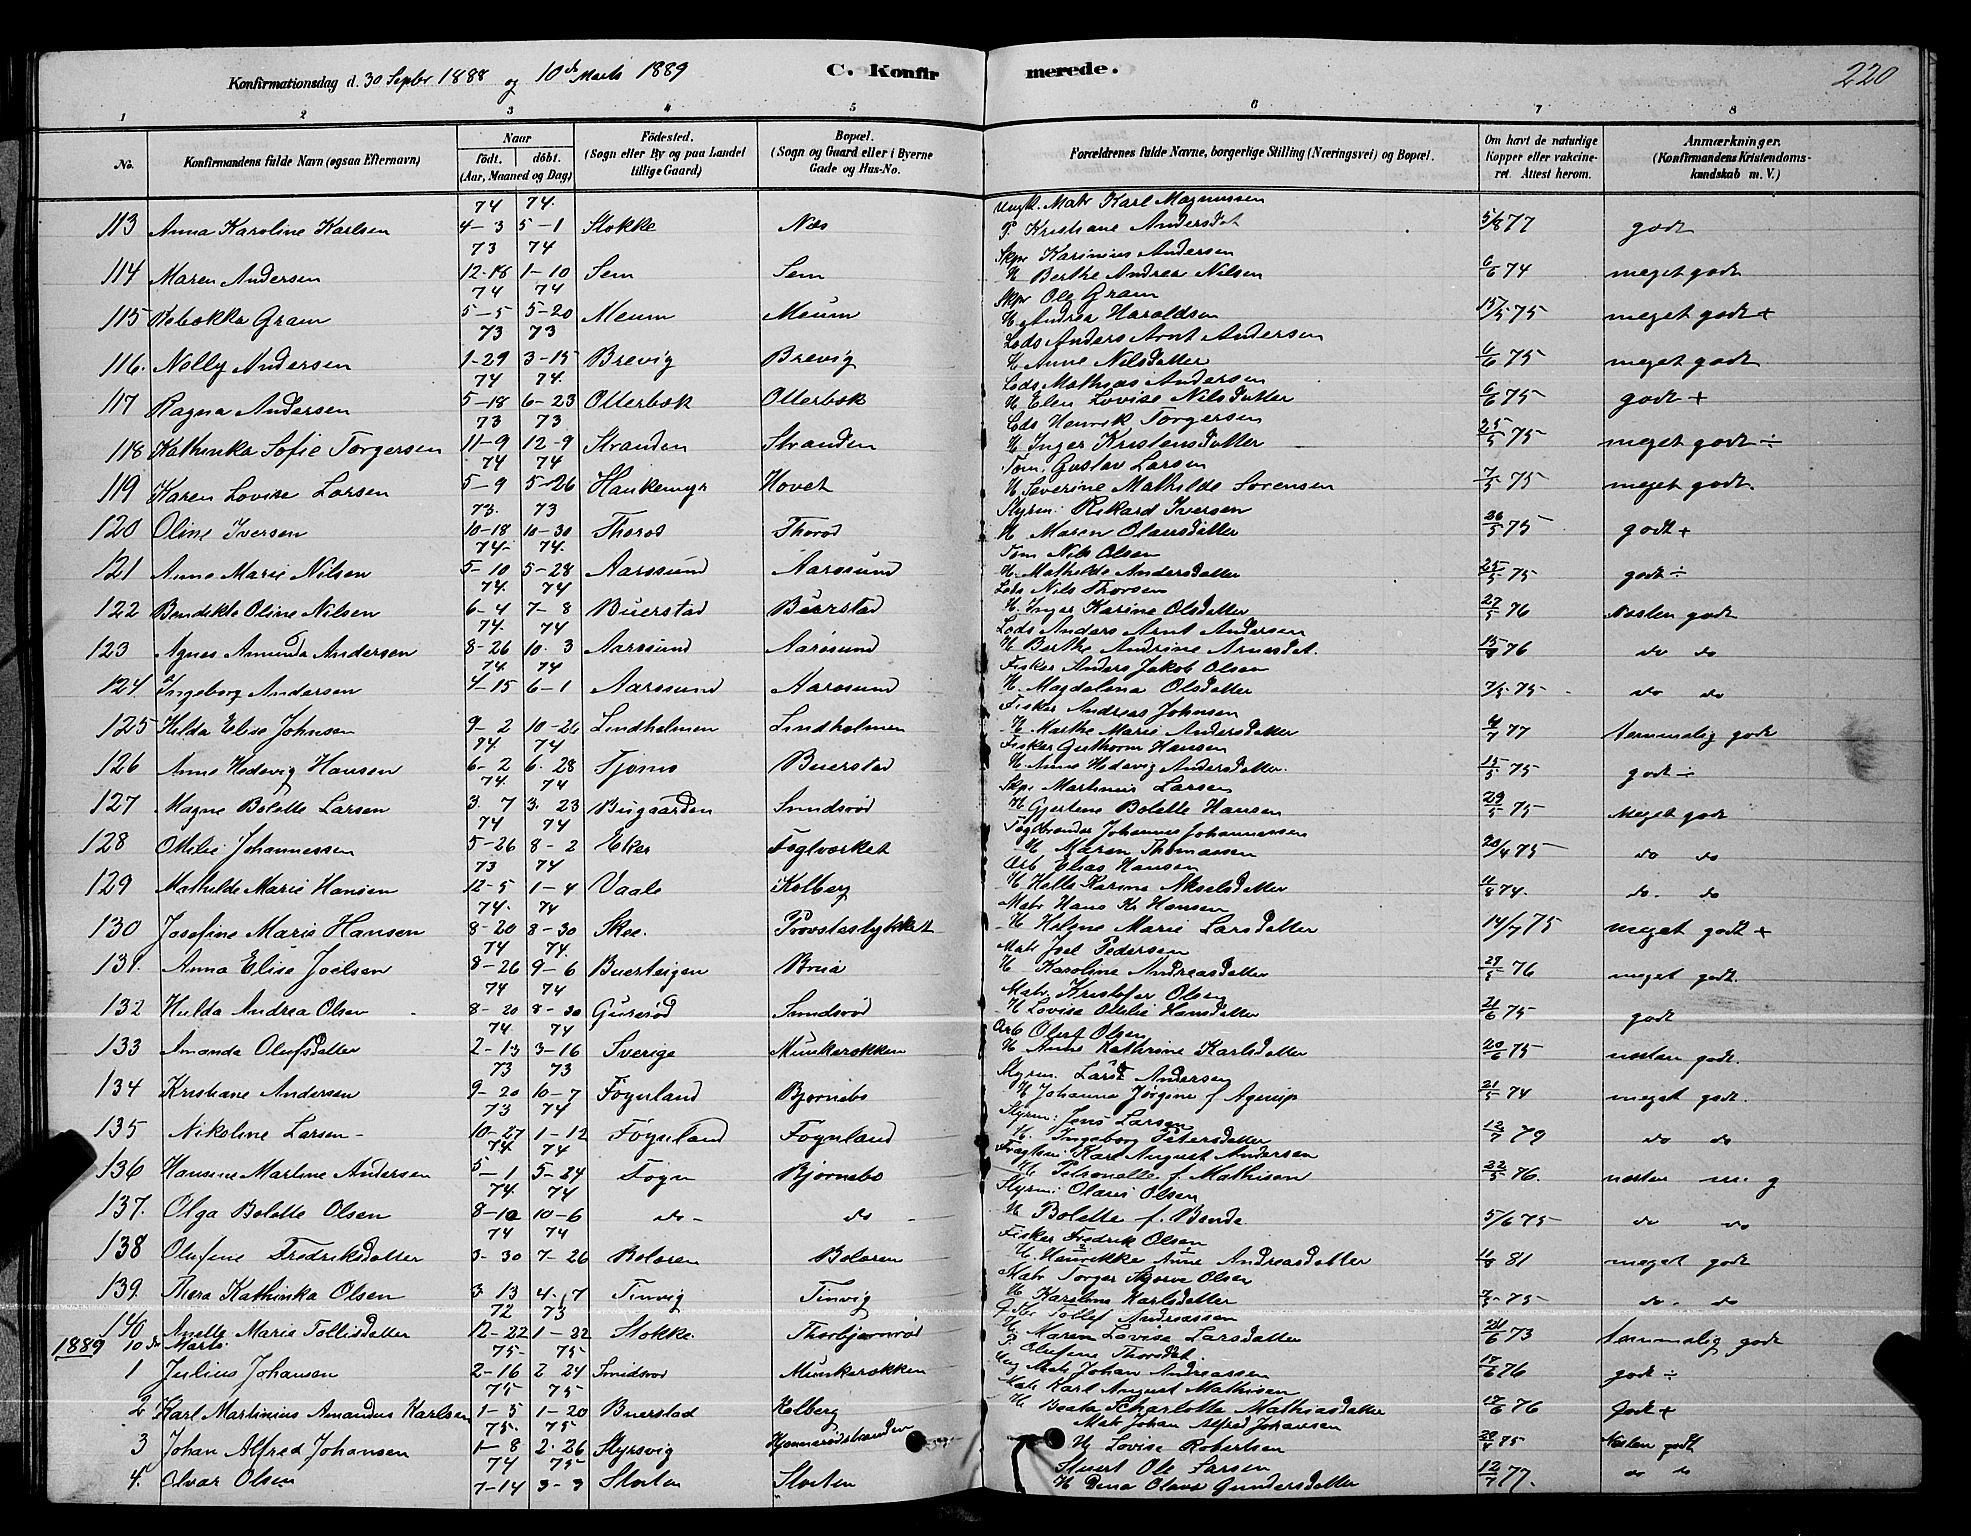 Konfirmationsdag d. 30 Septbr 1888 og 10de Marts 1889 C. Konfirmerede. 220
1 2 3 4 5 6 7 8
No. Konfirmandens fulde Navn (ogsaa Efternavn) Naar födt. döbt. (Aar, Maaned og Dag) Födested. (Sogn eller By og paa Landet tillige Gaard) Bopæl. (Sogn og Gaard eller i Byerne Gade og Hus-No. Forældrenes fulde Navne, borgerlige Stilling (Næringsvei) og Bopæl. Om havt de naturlige Kopper eller vakcineret. Attest herom. Anmærkninger. (Konfirmandens Kristendomskundskab m. V.)
74 74. Ungk. Matr Karl Magnussen
113 Anna Karoline Karlsen 4-3 5-1 Stokke Næs P. Kristiane Andersdat 5/8 77 godt
73 74 Skpr Karinius Andersen
114 Maren Andersen 12-18 1-10 Sem Sem H Berthe Andrea Nilsen 6/6 74 meget godt
74 74 Skpr Ole Gram
115 Rebekka Gram 5-5 5-20 Meum Meum H. Andrea Haraldsen 15/5 75 meget godt +
73 73 Lods Anders Arnt Andersen
116. Nelly Andersen 1-29 3-15 Brevig Brevig H Anne Nilsdatter 6/6 75 meget godt
74 74. Lods Mathias Andersen
117 Ragna Andersen 5-18 6-23 Otterbek Otterbek H Elen Lovise Nilsdatter 6/6 75 godt +
73 73 Lods Henrik Torgersen
118 Kathinka Sofie Torgersen 11-9 12-9 Stranden Stranden H Inger Kristensdatter 25/5 75 meget godt ÷
74 74 Tom: Gustav Larsen
119 Karen Lovise Larsen 5-9 5-26 Haukemyr Hovet H Severine Mathilde Sørensen 7/5 75 meget godt.
73. 73 Styrm: Rikard Iversen
120 Oline Iversen 10-18 10-30 Thorød Thorød H. Maren Olausdatter 26/5 75 godt +
74- 74. Tom Nils Olsen
121 Anna Marie Nilsen 5-10 5-28 Aarøsund Aarøsund H. Mathilde Andersdatter 25/5 75 godt ÷
74. 74 Lods Nils Thorsen
122 Bendikte Oline Nilsen 6-4 7-8 Buerstad Buerstad H. Inger Karine Olsdatter 27/5 76 Næsten godt
74. 74 Lods Anders Arnt Andersen
123 Agnes Amunda Andersen 8-26 10. 3 Aarøsund Aarøsund H Berthe Andrine Arnesdat. 15/9 76 do do
74 74 Fisker Anders Jakob Olsen
124 Ingeborg Andersen 4-15 6-1 Aarøsund Aarøsund H. Magdalena Olsdatter 7/5 75 do do
Fisker Andreas Johnsen
125 Hilda Elise Johnsen 9-2 10-26 Lindholmen Lindholmen H Marthe Marie Andersdatter 4/7 77 temmelig godt
74 74 Fisker Guthorm Hansen
126 Anne Hedevig Hansen 6-2 6-28 Tjømø Buerstad H. Anne Hedevig Andersdatter. 15/5 75 godt ÷
74 74 Skpr Martinius Larsen
127 Magne Bolette Larsen 3. 7 3. 23 Bugaarden Smidsrød H Gjertine Bolette Hansen 29/5 75 Meget godt
74 74 Teglbrænder Johannes Johannessen
128 Otilie Johannessen 5-26 8-2 Eker Teglværket H Maren Thomassen 20/4 75 do do
73 74 Arb Elias Hansen
129 Mathilde Marie Hansen 12-5 1-4 Vaale Kolberg H Helle Karine Akselsdatter 11/8 74. do. do
74. 74 Matr Hans Kr Hansen
130 Josefine Marie Hansen 8-20 8-30 Skee. Provstestykket H Helene Marie Larsdatter 14/7 75 meget godt +
74 74. Matr Joel Pedersen
131. Anna Elise Joelsen 8-26 9-6 Buerteigen Bruá H Karoline Andreasdatter 29/5 76 meget godt.
74 74 Matr. Kristofer Olsen
132 Hulda Andrea Olsen 8-20 8-30 Gurerød Smidsrød H Lovise Otilie Hansdatter 21/6 75 godt
74 74 Arb Oluf Olsen
133 Amanda Olufsdatter 2-13 3-16 Sverige Munkerekken H Anne Kathrine Karlsdatter 20/6 75 næsten godt.
73 73 Styrm. Lars Andersen
134 Kristiane Andersen 9-20 10-7 Føynland Bjørnebo H Johanne Jørgine f Agerup 21/5 74 meget godt.
73 74 Styrm: Jens Larsen
135 Nikoline Larsen 10-27 1-12 Føynland Føynland H. Ingeborg Petersdatter 12/7 79 do do
74. 74 Karl August Andersen
136 Hansine Martine Andersen 5-1 5-24 Føyn Bjørnebo H. Petronelle f. Mathisen 22/5 76. næsten m. g
74. 74 Styrm: Olaus Olsen
137. Olga Bolette Olsen 8-10 10-6 do- do H Bolette f. Bende 5/6 75 do do
74 74 Fisker Fredrik Olsen
138 Olufine Fredriksdatter 3-30 7-26 Bolæren Bolæren H. Henrikke Anne Andreasdatter 11/8 81 meget godt
Matr Torger Olsen
139. Thora Kathinka Olsen 3 13 4. 17 Tinvig Tinvig H Karoline Karlsdatter 75 do. do
72 73 Tollef Andreassen
140 Anette Marie Tollisdatter 12-22 1-22 Stokke Thorbjørnrød H Maren Lovise Larsdatter 21/6 73 temmelig godt
1889 10de Marts. 75- 75 P Olufine Thorsdat
1 Julius Johansen 2-16 2 24 Smidsrød Munkerekken Matr Johan Andreassen 17/6 76 godt ÷
75 75 Matr Karl August Mathisen
2 Karl Martinius Amandus Karlsen 1-5 1-20 Buerstad Kolberg H. Beate Scharlotte Mathiasdatter 17/6 76 Godt +
75. 75 Matr Johan Alfred Johansen
3 Johan Alfred Johansen 1-8 2. 26 Styrsvig Hjemmerødstranden H Lovise Robertsen 20/4 75 Næsten godt
74 75 Stuert Ole Larsen
4. Alvar Olsen 7-14 3-3 Storten Storten H Dina Olava Gundersdatter 12/7 77. do do